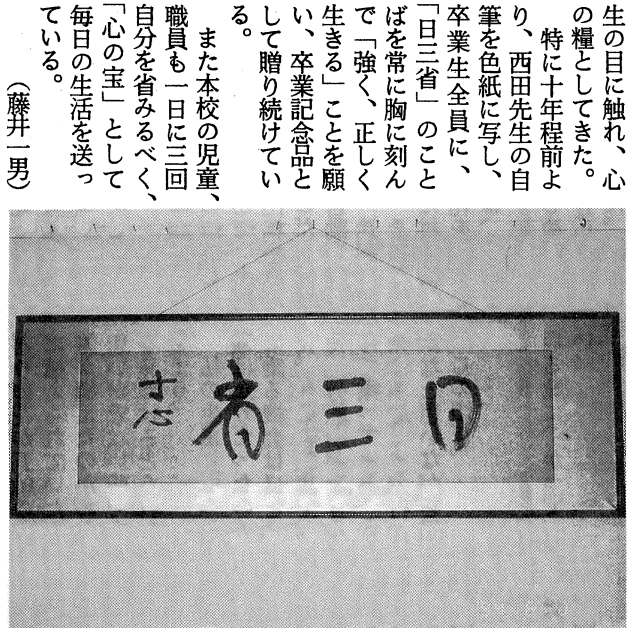 生の目に触れ、心
の糧としてきた。
　特に十年程前よ
り、西田先生の自
筆を色紙に写し、
卒業生全員に、
「日三省」のこと
ばを常に胸に刻ん
で「強く、正しく
生きる」ことを願
い、卒業記念品と
して贈り続けてい
る。
　また本校の児童、
職員も一日に三回
自分を省みるべく、
「心の宝」として
毎日の生活を送っ
ている。
（藤井一男）
日三省